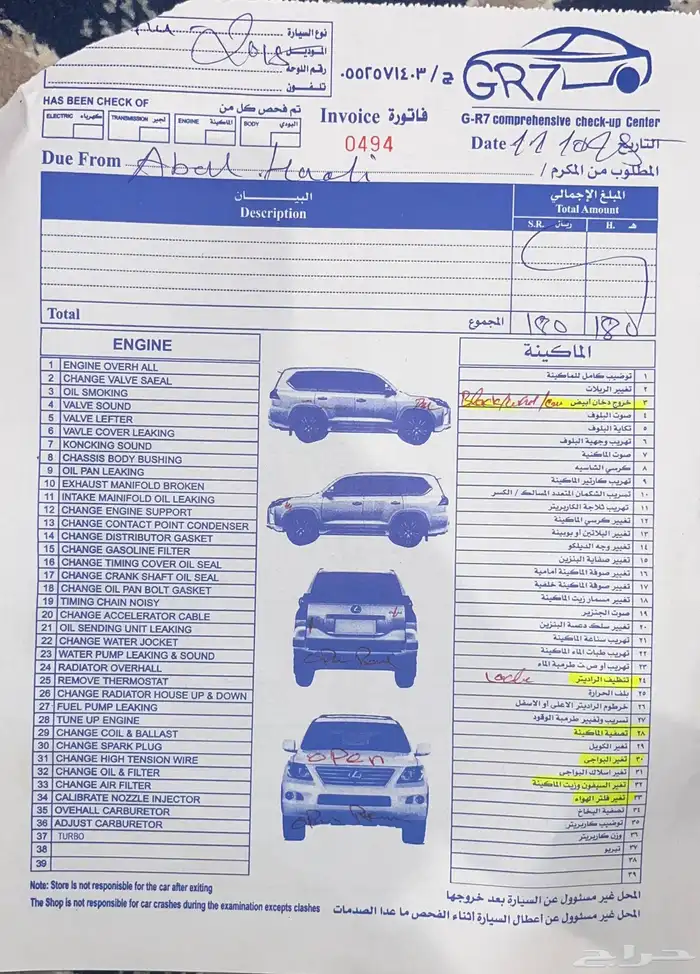 نوع السيارة
الموديل 2018
رقم اللوحة
تلفون
ج / ٠٥٥٢٥٧١٤٠٣
GR7
G-R7 comprehensive check-up Center
HAS BEEN CHECK OF
تم فحص كل من
ELECTRIC كهرباء
TRANSMISSION
ENGINE الماكينة
BODY البودي
Invoice فاتورة
0494
Date التاريخ
Due From Abdul Hadi المطلوب من المكرم /
البيـــــــان
Description
المبلغ الإجمالي
Total Amount
S.R. ريال
H. هـ
Total المجموع 180 180
ENGINE
1 ENGINE OVERH ALL
2 CHANGE VALVE SAEAL
3 OIL SMOKING
4 VALVE SOUND
5 VALVE LEFTER
6 VAVLE COVER LEAKING
7 KONCKING SOUND
8 CHASSIS BODY BUSHING
9 OIL PAN LEAKING
10 EXHAUST MANIFOLD BROKEN
11 INTAKE MAINIFOLD OIL LEAKING
12 CHANGE ENGINE SUPPORT
13 CHANGE CONTACT POINT CONDENSER
14 CHANGE DISTRIBUTOR GASKET
15 CHANGE GASOLINE FILTER
16 CHANGE TIMING COVER OIL SEAL
17 CHANGE CRANK SHAFT OIL SEAL
18 CHANGE OIL PAN BOLT GASKET
19 TIMING CHAIN NOISY
20 CHANGE ACCELERATOR CABLE
21 OIL SENDING UNIT LEAKING
22 CHANGE WATER JOCKET
23 WATER PUMP LEAKING & SOUND
24 RADIATOR OVERHALL
25 REMOVE THERMOSTAT
26 CHANGE RADIATOR HOUSE UP & DOWN
27 FUEL PUMP LEAKING
28 TUNE UP ENGINE
29 CHANGE COIL & BALLAST
30 CHANGE SPARK PLUG
31 CHANGE HIGH TENSION WIRE
32 CHANGE OIL & FILTER
33 CHANGE AIR FILTER
34 CALIBRATE NOZZLE INJECTOR
35 OVEHALL CARBURETOR
36 ADJUST CARBURETOR
37 TURBO
38
39
open
الماكينة
١ توضيب كامل للماكينة
٢ تغيير الربلات
٣ خروج دخان أبيض
٤ صوت البلوف
٥ تكاية البلوف
٦ تهريب وجهية البلوف
٧ صوت الماكينة
٨ كرسي الشاسيه
٩ تهريب كارتير الماكينة
١٠ تسريب الشكمان المتعدد المسالك / الكسر
١١ تهريب ثلاجة الكاربريتر
١٢ تغيير كرسي الماكينة
١٣ تغيير البلاتين أو بوبينة
١٤ تغيير وجه الديلكو
١٥ تغيير صفاية البنزين
١٦ تغيير صوفة الماكينة أمامية
١٧ تغيير صوفة الماكينة خلفية
١٨ تغيير مسمار زيت الماكينة
١٩ صوت الجنزير
٢٠ تغيير سلك دعسة البنزين
٢١ تهريب ساعة الماكينة
٢٢ تهريب طبات الماء الماكينة
٢٣ تهريب أو ص.ت طرمبة الماء
٢٤ تنظيف الراديتر
٢٥ بلف الحرارة
٢٦ خرطوم الراديتر الأعلى أو الأسفل
٢٧ تسريب وتغيير طرمبة الوقود
٢٨ تصفية الماكينة
٢٩ تغير الكويل
٣٠ تغير البواجي
٣١ تغير اسلاك البواجي
٣٢ تغير السيفون وزيت الماكينة
٣٣ تغير فلتر الهواء
٣٤ تصفية البخاخ
٣٥ توضيب كاربريتر
٣٦ وزن كاربريتر
٣٧ تيربو
٣٨
٣٩
Note: Store is not responisble for the car after exiting
المحل غير مسؤول عن السيارة بعد خروجها
The Shop is not responsible for car crashes during the examination excepts clashes
المحل غير مسؤول عن أعطال السيارة أثناء الفحص ما عدا الصدمات
حراج